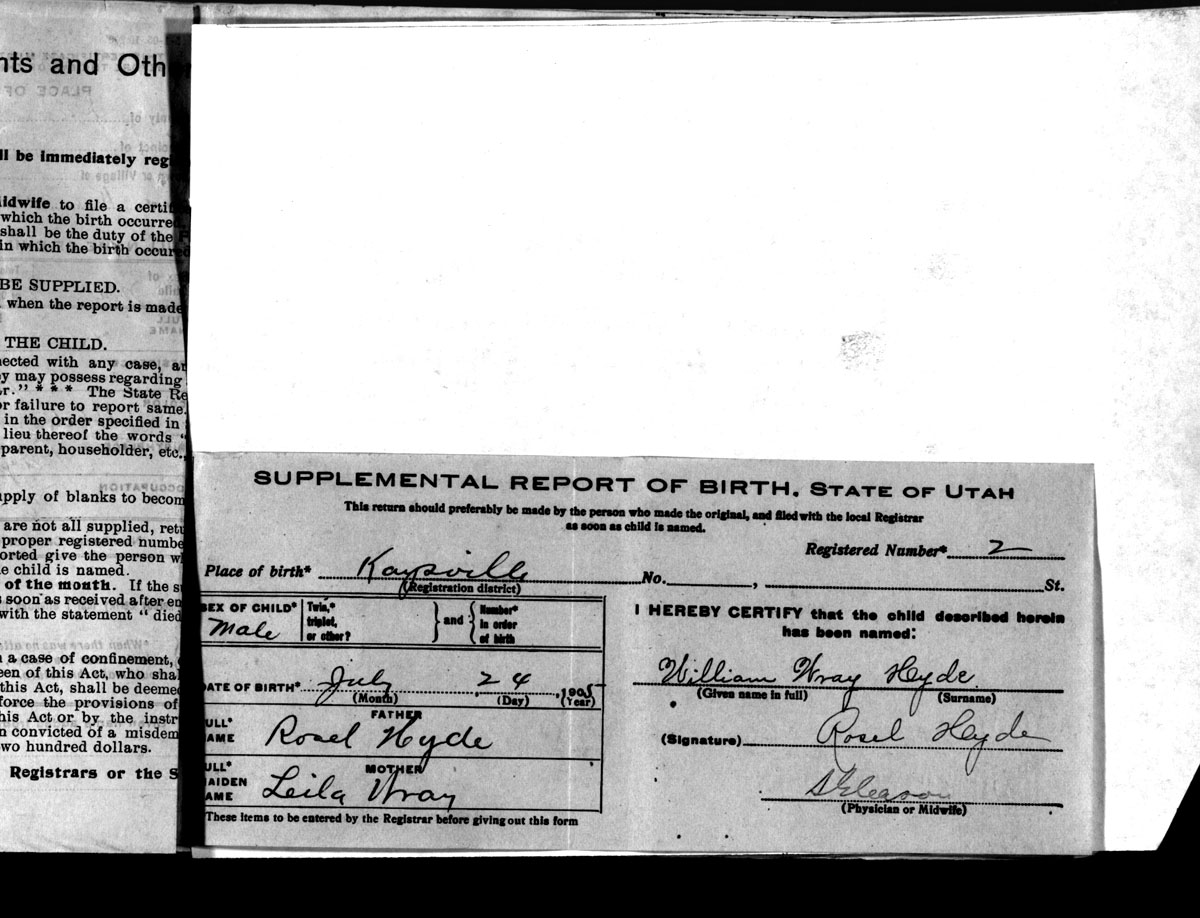 nts and Oth
ll be immediately reg
idwife to file a certif
which the birth occurre
shall be the duty of the
in which the birth occur
BE SUPPLIED.
when the report is made
THE CHILD.
nected with any case, an
y may possess regarding
r." * * * The State Re
or failure to report same.
in the order specified in
lieu thereof the words "
parent, householder, etc.,
upply of blanks to becom
are not all supplied, retu
proper registered numbe
orted give the person w
e child is named.
of the month. If the s
s soon as received after en
with the statement "died
n a case of confinement,
een of this Act, who shal
this Act, shall be deemed
force the provisions of
his Act or by the instr
n convicted of a misdem
wo hundred dollars.
Registrars or the S
SUPPLEMENTAL REPORT OF BIRTH. STATE OF UTAH
This return should preferably be made by the person who made the original, and filed with the local Registrar
as soon as child is named.
Registered Number* 2
Place of birth* Kaysville No. , St.
(Registration district)
SEX OF CHILD* Male
Twin,* triplet, or other? } and { Number* in order of birth
DATE OF BIRTH* July 24, 1905
(Month) (Day) (Year)
FATHER
ULL* AME Rosel Hyde
MOTHER
ULL* AIDEN AME Leila Wray
These items to be entered by the Registrar before giving out this form
I HEREBY CERTIFY that the child described herein
has been named:
William Wray Hyde
(Given name in full) (Surname)
(Signature) Rosel Hyde
S Gleason
(Physician or Midwife)